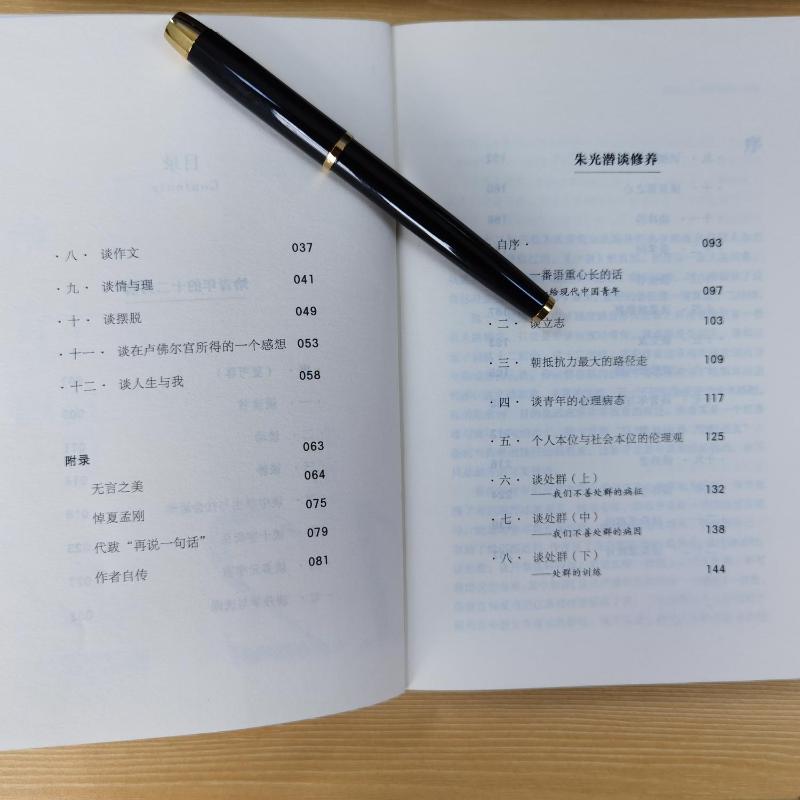 ·八· 谈作文 037
·九· 谈情与理 041
·十· 谈摆脱 049
·十一· 谈在卢佛尔宫所得的一个感想 053
·十二· 谈人生与我 058
附录 063
无言之美 064
悼夏孟刚 075
代跋“再说一句话” 079
作者自传 081
朱光潜谈修养
自序· 093
一番语重心长的话
给现代中国青年 097
·二· 谈立志 103
·三· 朝抵抗力最大的路径走 109
·四· 谈青年的心理病态 117
·五· 个人本位与社会本位的伦理观 125
·六· 谈处群（上）
——我们不善处群的病征 132
·七· 谈处群（中）
——我们不善处群的病因 138
·八· 谈处群（下）
——处群的训练 144